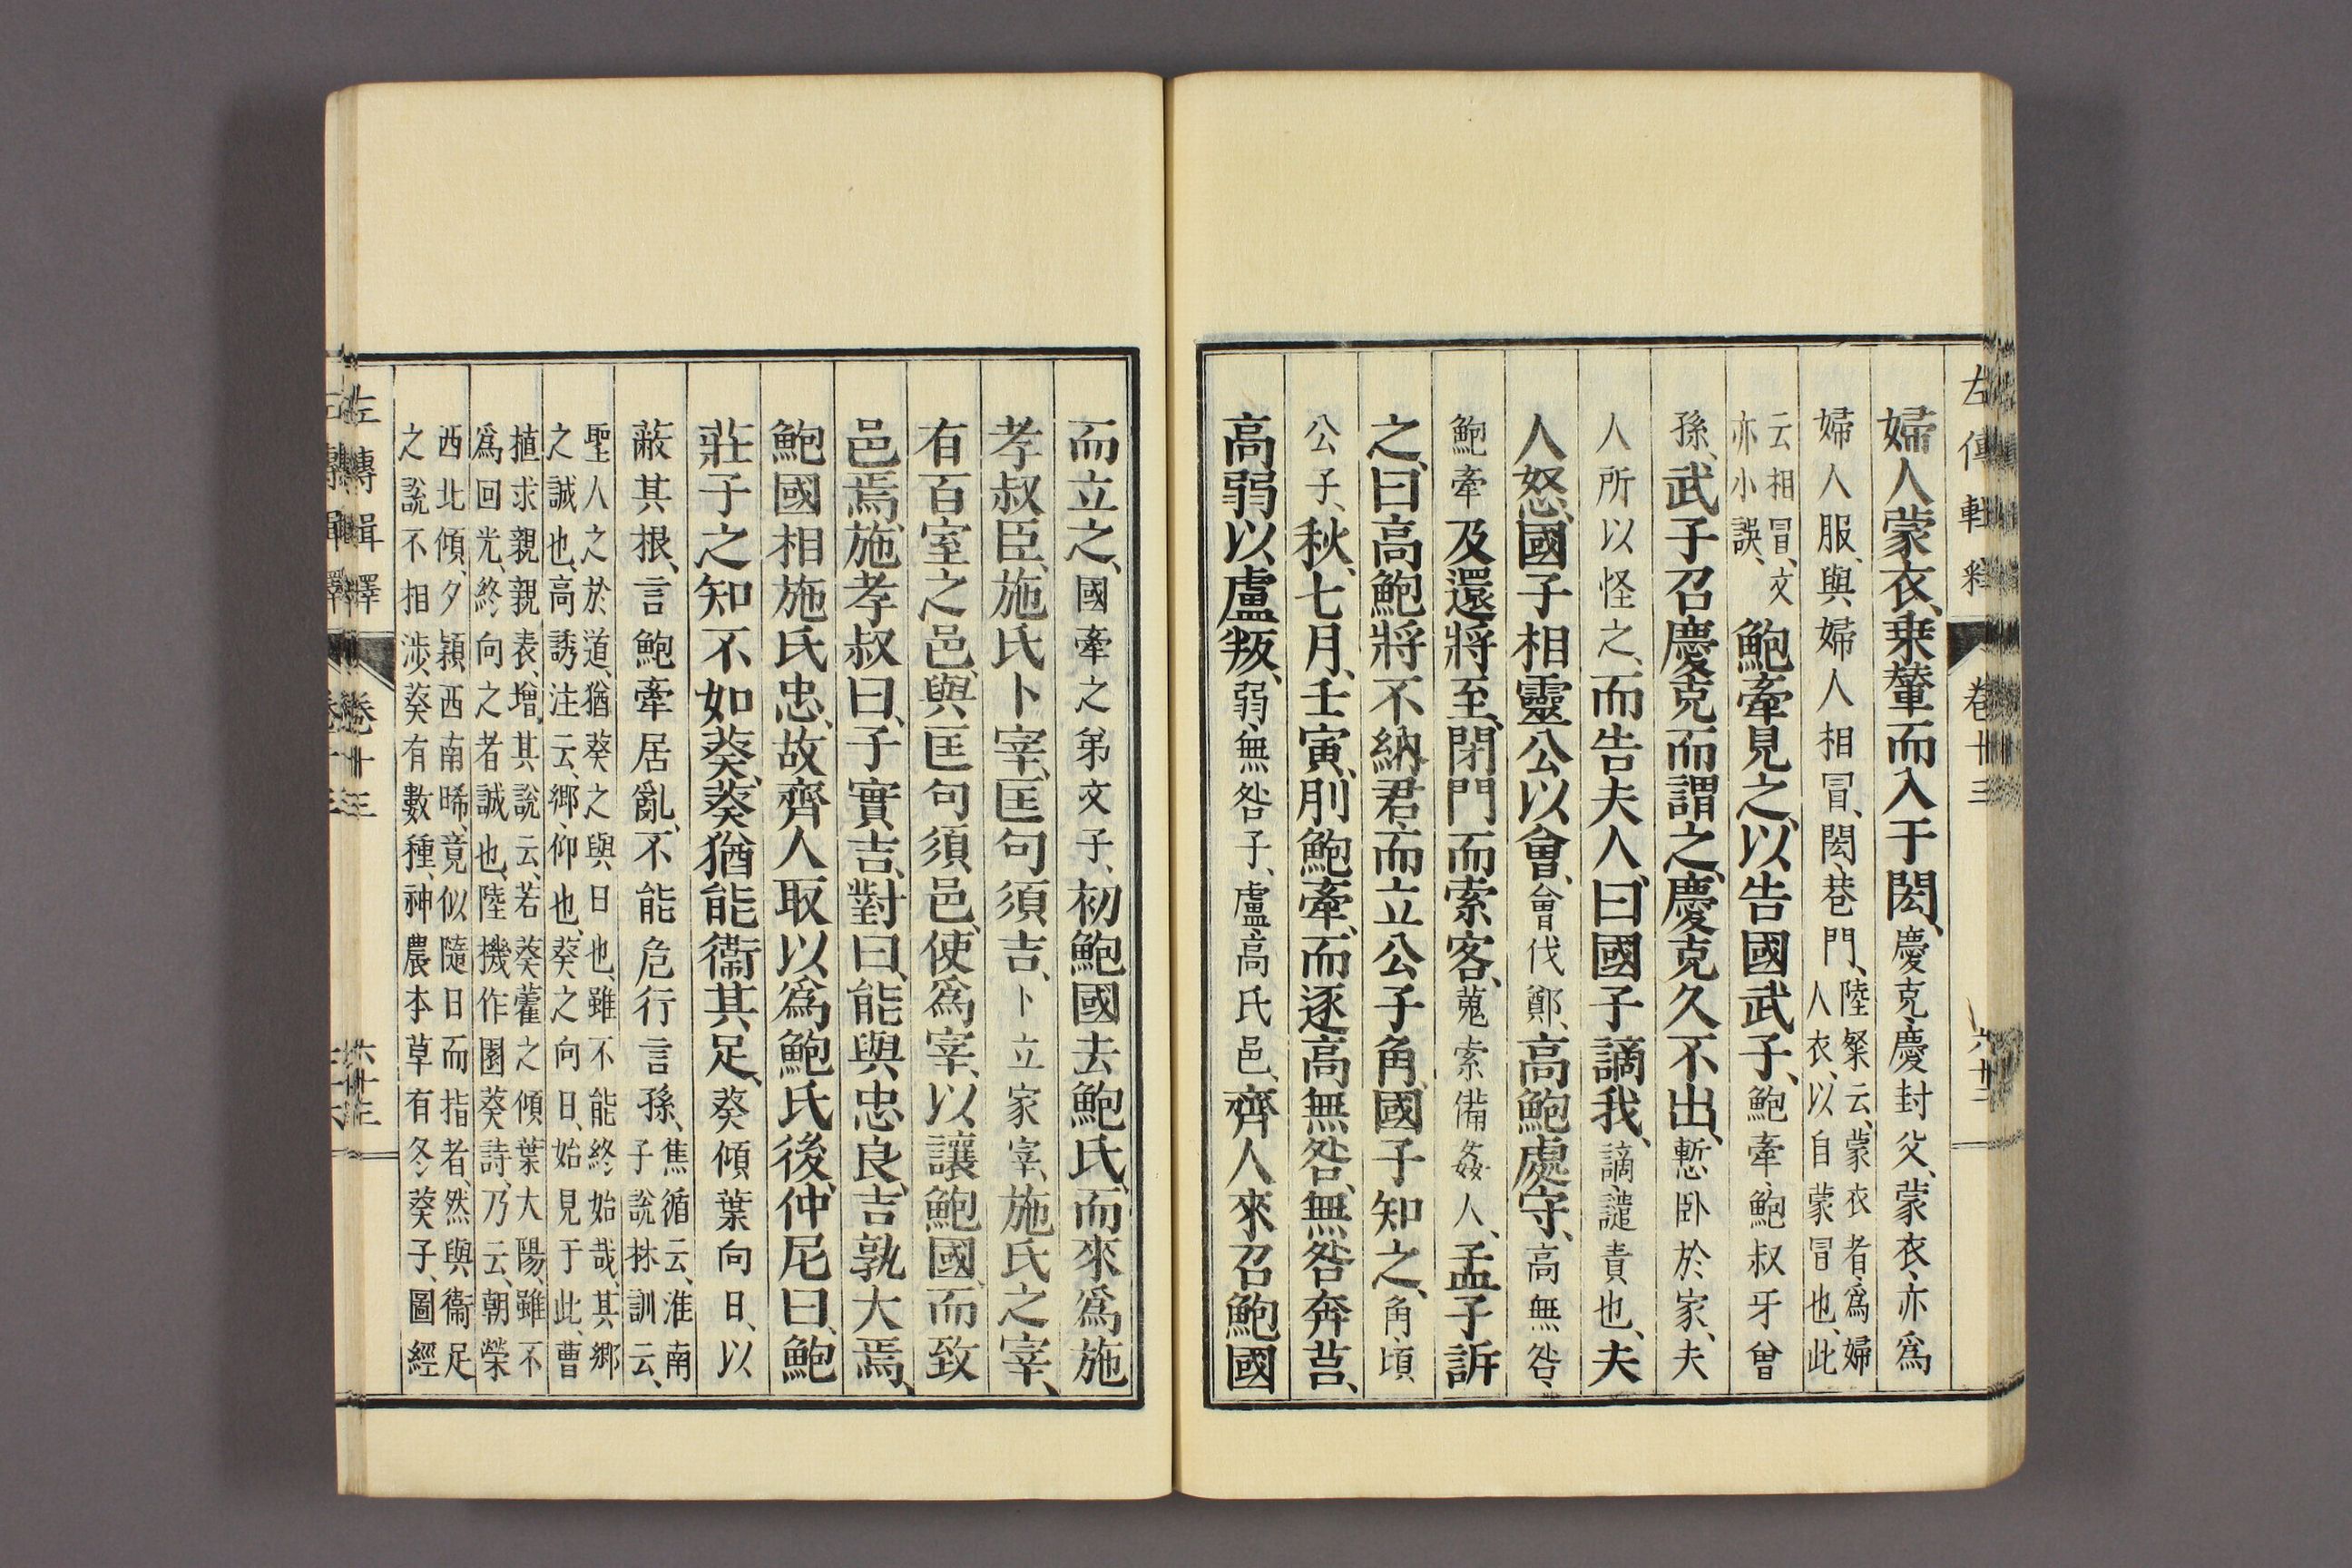 左傳輯釋 卷十三
婦人蒙衣、乗輦而入于閎、慶克、慶封父、蒙衣、亦爲
婦人服、與婦人相冒、閎、巷門、陸粲云、蒙衣者、爲婦
人衣、以自蒙冒也、此
云相冒、文
亦小誤、鮑牽見之、以告國武子、鮑牽、鮑叔牙曾
孫、武子召慶克而謂之、慶克久不出、慙臥於家、夫
人所以怪之、而告夫人、曰國子謫我、謫、譴責也、夫
人怒、國子相靈公以會、會伐鄭、高鮑處守、高無咎、
鮑牽及還將至、閉門而索客、蒐索備姦人、孟子訴
之、曰高鮑將不納君、而立公子角、國子知之、角、頃
公子、秋、七月、壬寅、刖鮑牽、而逐高無咎、無咎奔莒、
高弱以盧叛、弱、無咎子、盧、高氏邑、齊人來召鮑國
而立之、國牽之弟文子、初鮑國去鮑氏、而來爲施
孝叔臣、施氏卜宰、匡句須吉、卜立家宰、施氏之宰、
有百室之邑、與匡句須邑、使爲宰、以讓鮑國、而致
邑焉、施孝叔曰、子實吉、對曰、能與忠良、吉孰大焉、
鮑國相施氏忠、故齊人取以爲鮑氏後、仲尼曰、鮑
莊子之知不如葵、葵猶能衞其足、葵傾葉向日、以
蔽其根、言鮑牽居亂、不能危行言孫、焦循云、淮南
子說林訓云、
聖人之於道、猶葵之與日也、雖不能終始哉、其鄉
之誠也、高誘注云、鄉、仰也、葵之向日、始見于此、曹
植求親親表、增其說云、若葵藿之傾葉大陽、雖不
爲回光、終向之者誠也、陸機作園葵詩、乃云、朝榮
西北傾、夕穎西南晞、竟似隨日而指者、然與衞足
之說不相涉、葵有數種、神農本草有冬葵子、圖經
左傳輯釋 卷十三